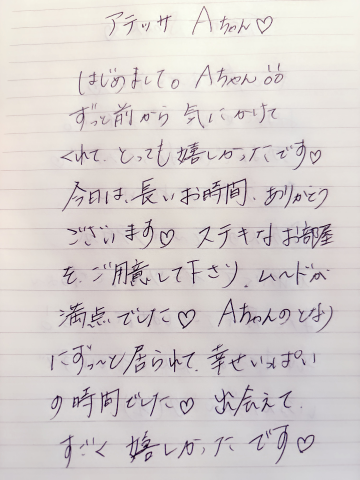 アテッサ Aちゃん♡
はじめまして。Aちゃん
ずっと前から 気にかけて
くれて、とっても嬉しかったです♡
今日は、長いお時間、ありがとう
ございます♡ ステキなお部屋
を、ご用意して下さり、ムードが
満点でした♡ Aちゃんのとなり
にずっ〜と居られて、幸せいっぱい
の時間でした♡ 出会えて、
すごく 嬉しかった です♡